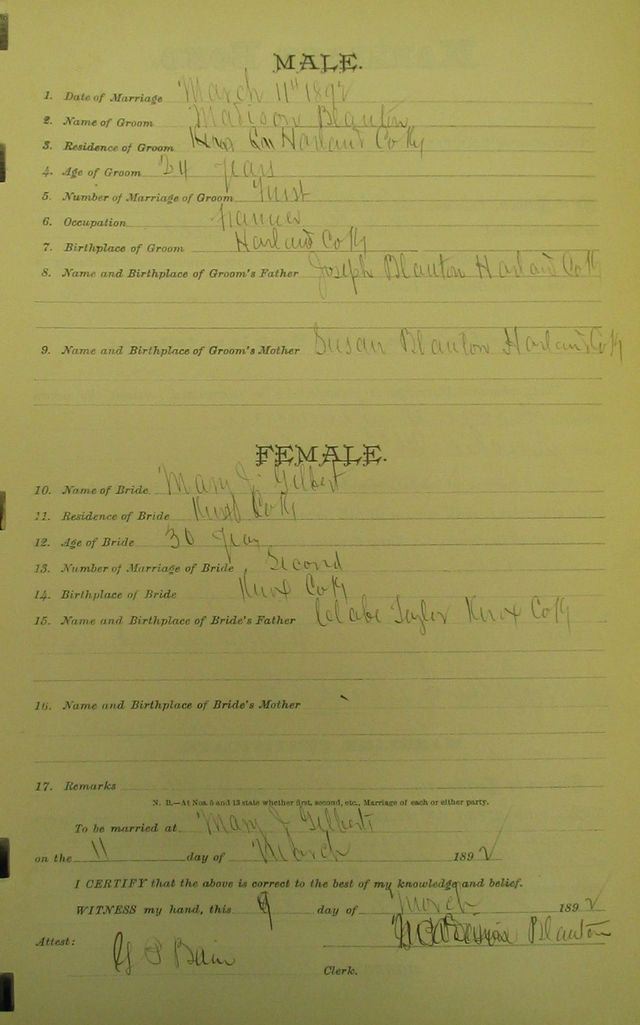 MALE.
1. Date of Marriage March 11th 1892
2. Name of Groom Madison Blanton
3. Residence of Groom Harland Co Ky
4. Age of Groom 24 years
5. Number of Marriage of Groom First
6. Occupation Farmer
7. Birthplace of Groom Harland Co Ky
8. Name and Birthplace of Groom's Father Joseph Blanton Harland Co Ky
9. Name and Birthplace of Groom's Mother Susan Blanton Harland Co Ky
FEMALE.
10. Name of Bride Mary J. Gilbert
11. Residence of Bride Knox Co Ky
12. Age of Bride 30 years
13. Number of Marriage of Bride Second
14. Birthplace of Bride Knox Co Ky
15. Name and Birthplace of Bride's Father Taylor Knox Co Ky
16. Name and Birthplace of Bride's Mother
17. Remarks
N. B.—At Nos. 5 and 13 state whether first, second, etc., Marriage of each or either party.
To be married at Mary J Gilberts
on the 11 day of March 1892
I CERTIFY that the above is correct to the best of my knowledge and belief.
WITNESS my hand, this 9 day of March 1892
Blanton
Attest:
G P Bain
Clerk.